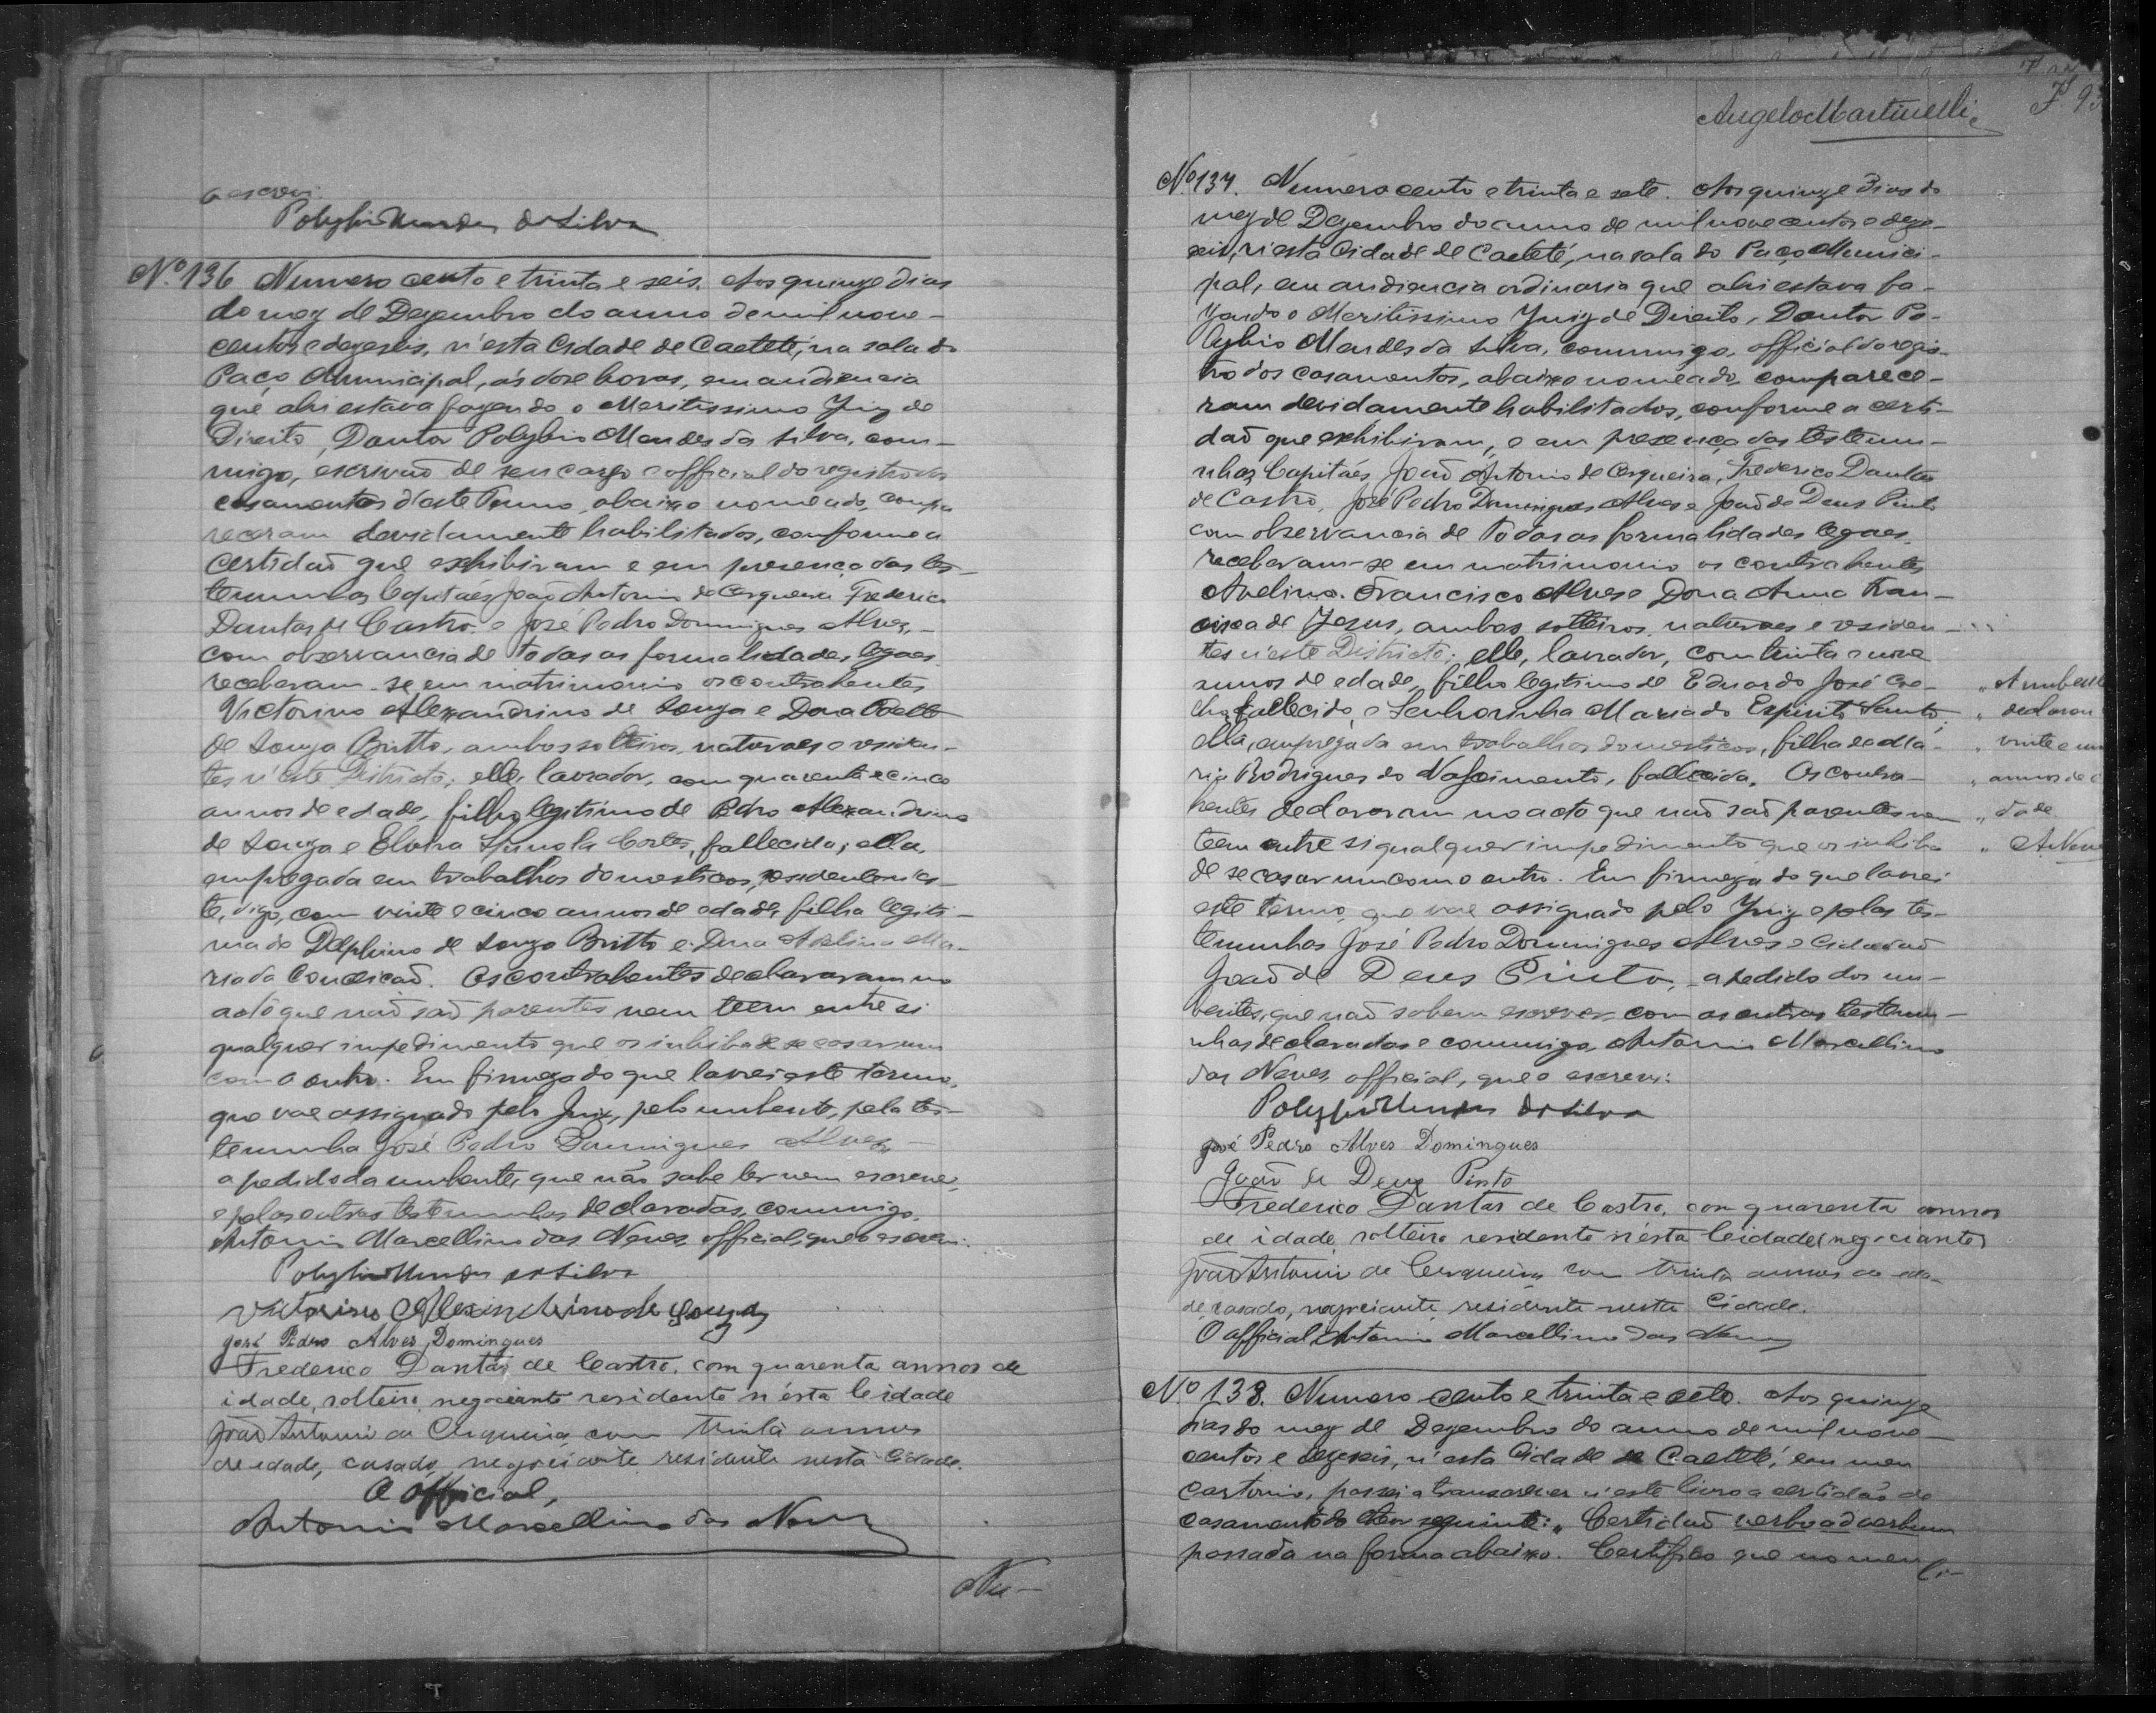 o escrevi.
Polybio Mendes da Silva
Nº 136 Numero cento e trinta e seis. Aos quinze dias
do mez de Dezembro do anno de mil nove-
centos e dezeseis, n'esta Cidade de Caeteté, na sala do
Paço Municipal, ás doze horas, em audiencia
que ahi estava fazendo o Meritissimo Juiz de
Direito, Doutor Polybio Mendes da Silva, com-
migo, escrivaõ de seu cargo e official do registro dos
casamentos d'este Termo, abaixo nomeado, compa
receram devidamente habilitados, conforme a
certidaõ que exhibiram e em presença das tes-
temunhas Capitaẽs Joaõ Antonio de Cerqueira Frederico
Dantas de Castro e José Pedro Domingues Alves,-
com observancia de todas as formalidades legaes
receberam-se em matrimonio os contrahentes
Victorino Alexandrino de Souza e Dona
de Souza Britto, ambos solteiros, naturaes e residen-
tes n'este Districto; elle, lavrador, com quarenta e cinco
annos de edade, filho legitimo de Pedro Alexandrino
de Souza e Elvira Spinola Cortes, fallecida; ella,
empregada em trabalhos domesticos, residente n'es-
te, digo, com vinte e cinco annos de edade, filha legiti-
ma de Delphino de Souza Britto e Dona Adelina Ma-
ria da Conceicaõ. Os contrahentes declararam no
acto que naõ saõ parentes nem teem entre si
qualquer impedimento que os inhiba de se casar um
com o outro. Em firmeza do que lavrei este termo,
que vae assignado pelo Juiz, pelo nubente, pela tes-
temunha José Pedro Domingues Alves
a pedido da nubente, que não sabe ler nem escrever,
e pelas outras testemunhas declaradas, commigo,
Antonio Marcellino das Neves, official, que o escrevi.
Polybio Mendes da Silva
Victorino Alexandrino de Souza
José Pedro Alves Domingues
Frederico Dantas de Castro, com quarenta annos de
idade, solteiro, negociante residente n'esta Cidade
João Antonio de Cerqueira com trinta annos
de edade, casado, negociante, residente nesta Cidade.
O official,
Antonio Marcellino das Neves
Nu-
Angelo Martinelli
F. 93
Nº 137. Numero cento e trinta e sete. Aos quinze dias do
mez de Dezembro do anno de mil nove centos e deze-
seis, n'esta Cidade de Caeteté, na sala do Paço Munici-
pal, em audiencia ordinaria que ahi estava fa-
zendo o Meritissimo Juiz de Direito, Doutor Po-
lybio Mendes da Silva, commigo, official do regis-
tro dos casamentos, abaixo nomeado, comparece-
ram devidamente habilitados, conforme a certi-
daõ que exhibiram, e em presença das testemu-
nhas Capitaẽs Joaõ Antonio de Cerqueira, Frederico Dantas
de Castro, José Pedro Domingues Alves e Joaõ de Deus Pinto
com observancia de todas as formalidades legaes
receberam-se em matrimonio os contrahentes
Avelino Francisco Alves e Dona Anna Fran-
cisca de Jesus, ambos solteiros, naturaes e residen-
tes n'este Districto; elle, lavrador, com trinta e nove
annos de edade, filho legitimo de Eduardo José Coe-
lho, fallecido, e Senhorinha Maria do Espirito Santo;
ella, empregada em trabalhos domesticos, filha de Ma-
ria Rodrigues do Nascimento, fallecida. Os contra-
hentes declararam no acto que naõ saõ parentes nem
teem entre si qualquer impedimento que os inhiba
de se casar um com o outro. Em firmeza do que lavrei
este termo, que vae assignado pelo Juiz e pelas tes-
temunhas José Pedro Domingues Alves e Cidadaõ
Joaõ de Deus Pinto, a pedido dos nu-
bentes, que naõ sabem escrever, com as outras testemu-
nhas declaradas e commigo, Antonio Marcellino
das Neves, official, que o escrevi:
Polybio Mendes da Silva
José Pedro Alves Domingues
Joaõ de Deus Pinto
Frederico Dantas de Castro, com quarenta annos
de idade, solteiro residente n'esta Cidade (negociante)
João Antonio de Cerqueira com trinta annos de eda-
de, casado, negociante, residente nesta Cidade.
O official Antonio Marcellino das Neves
„ A nubente
„ declarou
„ vinte e um
„ annos de e
„ dade
„ A. Neve
Nº 138. Numero cento e trinta e oito. Aos quinze
dias do mez de Dezembro do anno de mil nove
centos e dezeseis, n'esta Cidade de Caeteté, em meu
Cartorio, passei a transcrever n'este livro a certidão de
casamento do theor seguinte: „ Certidaõ verbo ad verbum
passada na forma abaixo. Certifico que no meu